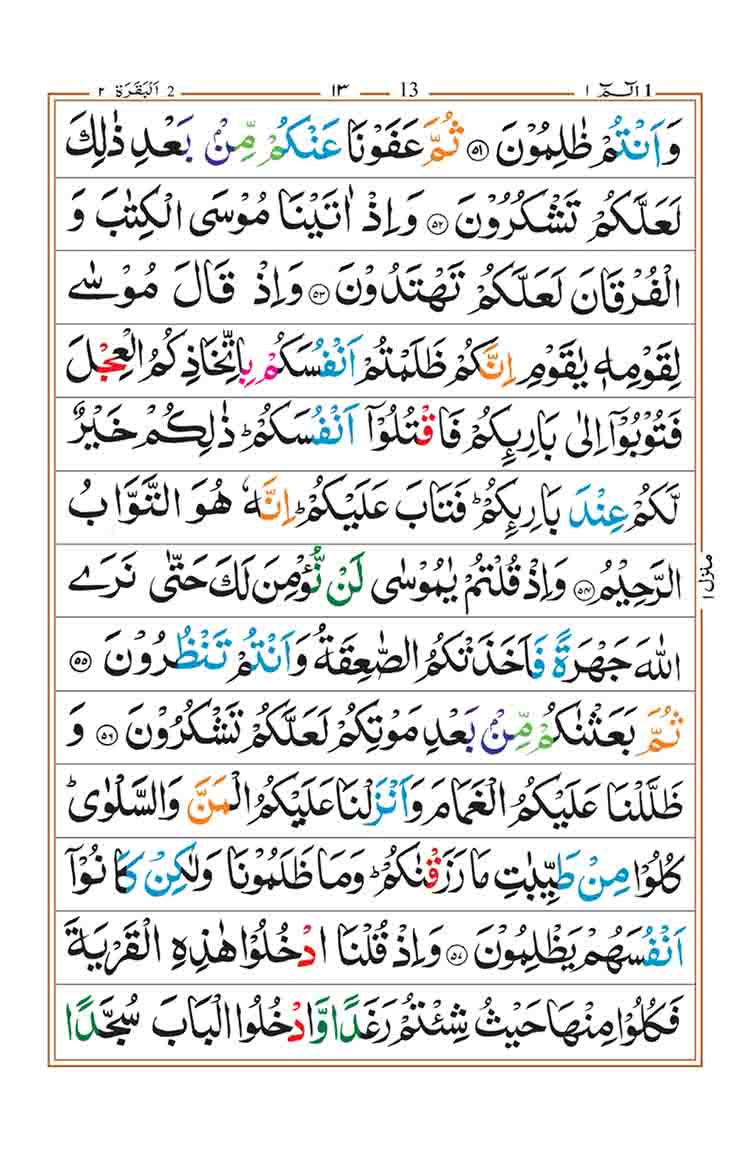 1 الٓـمّٓ ١ 13 ١٣ 2 اَلْبَقَرَة ٢
وَاَنْتُمْ ظٰلِمُوْنَ ﴿۵۱﴾ ثُمَّ عَفَوْنَا عَنْكُمْ مِّنْۢ بَعْدِ ذٰلِكَ
لَعَلَّكُمْ تَشْكُرُوْنَ ﴿۵۲﴾ وَاِذْ اٰتَيْنَا مُوْسَى الْكِتٰبَ وَ
الْفُرْقَانَ لَعَلَّكُمْ تَهْتَدُوْنَ ﴿۵۳﴾ وَاِذْ قَالَ مُوْسٰى
لِقَوْمِهٖ يٰقَوْمِ اِنَّكُمْ ظَلَمْتُمْ اَنْفُسَكُمْ بِاتِّخَاذِكُمُ الْعِجْلَ
فَتُوْبُوْٓا اِلٰى بَارِئِكُمْ فَاقْتُلُوْٓا اَنْفُسَكُمْ ؕ ذٰلِكُمْ خَيْرٌ
لَّكُمْ عِنْدَ بَارِئِكُمْ ؕ فَتَابَ عَلَيْكُمْ ؕ اِنَّهٗ هُوَ التَّوَّابُ
الرَّحِيْمُ ﴿۵۴﴾ وَاِذْ قُلْتُمْ يٰمُوْسٰى لَنْ نُّؤْمِنَ لَكَ حَتّٰى نَرَى
اللّٰهَ جَهْرَةً فَاَخَذَتْكُمُ الصّٰعِقَةُ وَاَنْتُمْ تَنْظُرُوْنَ ﴿۵۵﴾
ثُمَّ بَعَثْنٰكُمْ مِّنْۢ بَعْدِ مَوْتِكُمْ لَعَلَّكُمْ تَشْكُرُوْنَ ﴿۵۶﴾ وَ
ظَلَّلْنَا عَلَيْكُمُ الْغَمَامَ وَاَنْزَلْنَا عَلَيْكُمُ الْمَنَّ وَالسَّلْوٰى ؕ
كُلُوْا مِنْ طَيِّبٰتِ مَا رَزَقْنٰكُمْ ؕ وَمَا ظَلَمُوْنَا وَلٰكِنْ كَانُوْٓا
اَنْفُسَهُمْ يَظْلِمُوْنَ ﴿۵۷﴾ وَاِذْ قُلْنَا ادْخُلُوْا هٰذِهِ الْقَرْيَةَ
فَكُلُوْا مِنْهَا حَيْثُ شِئْتُمْ رَغَدًا وَّادْخُلُوا الْبَابَ سُجَّدًا
منزل ١